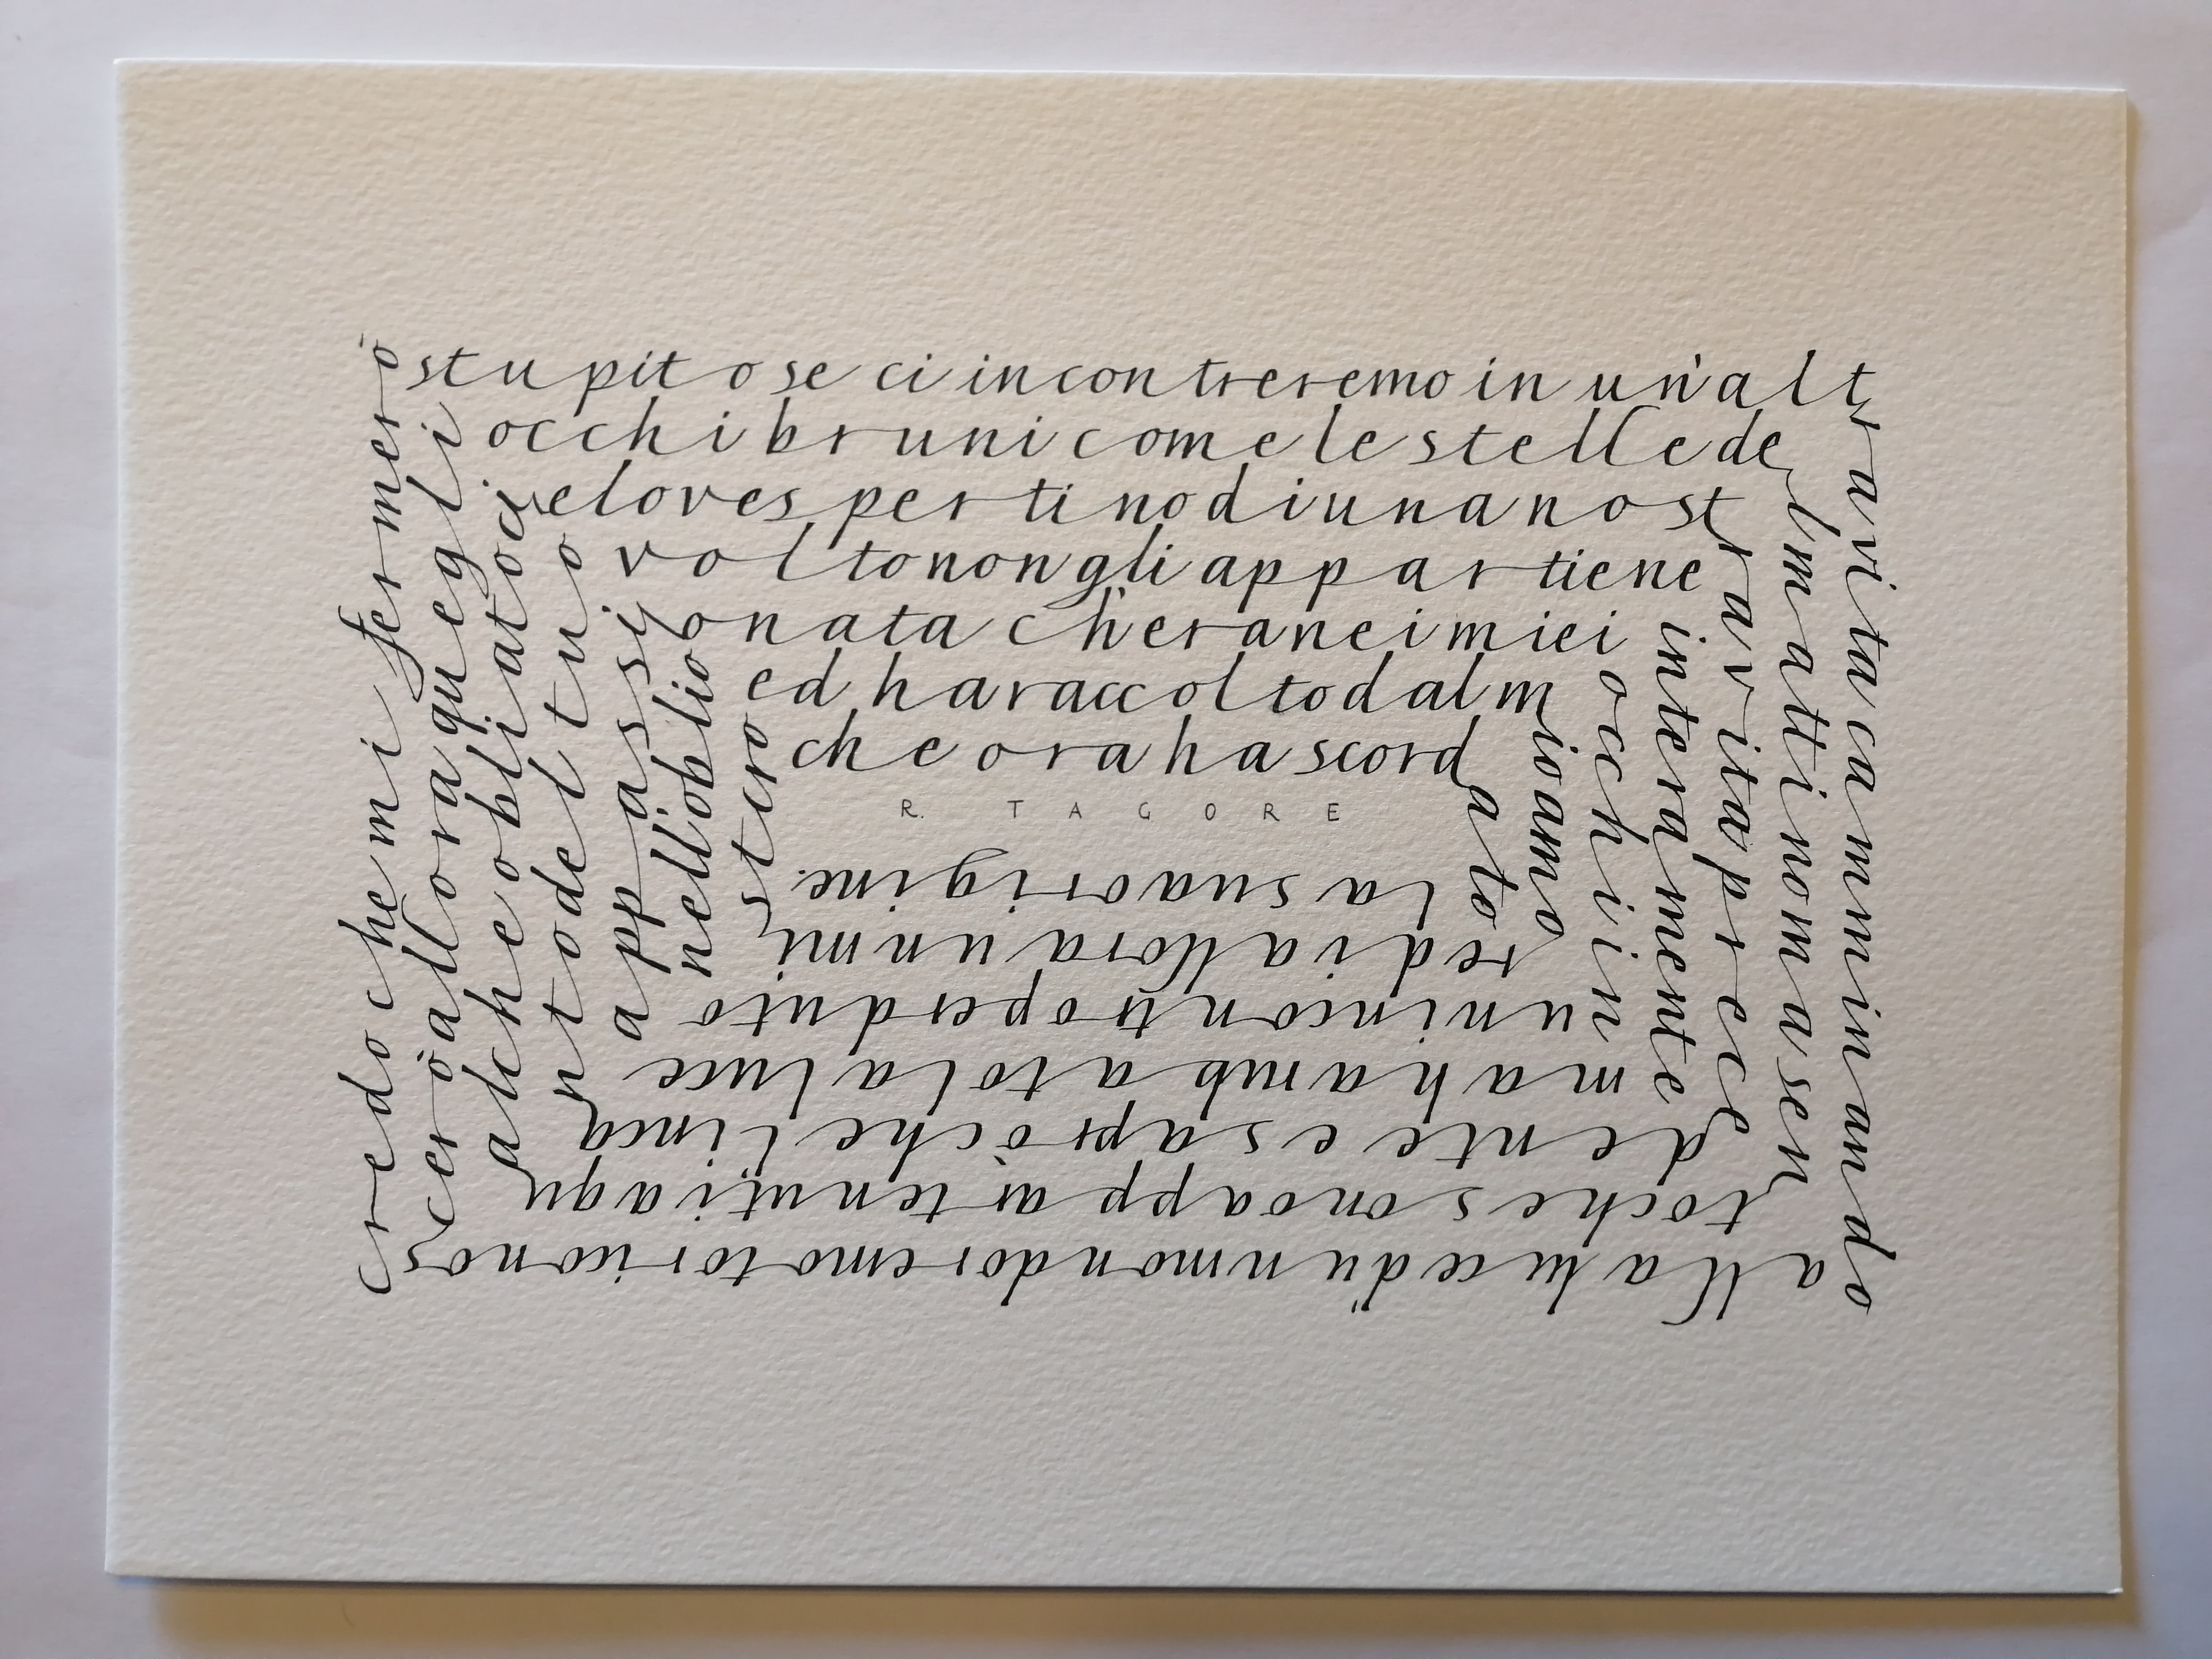 credo che mi fermerò
stupito se ci incontreremo in un'alt
ra vita camminando
alla luce d'un mondo remoto riconos
cerò allora quegli
occhi bruni come le stelle de
l mattino ma sen
to che sono appartenuti a qu
alche obliato ci
elo vespertino di una nost
ra vita prece
dente e saprò che l'inca
nto del tuo
volto non gli appartiene
interamente
ma ha rubato la luce
appassi
onata ch'era nei miei
occhi in
un incontro perduto
nell oblio
ed ha raccolto dal m
io amo
re di allora un mi
stero
che ora ha scord
ato
la sua origine.
R. TAGORE